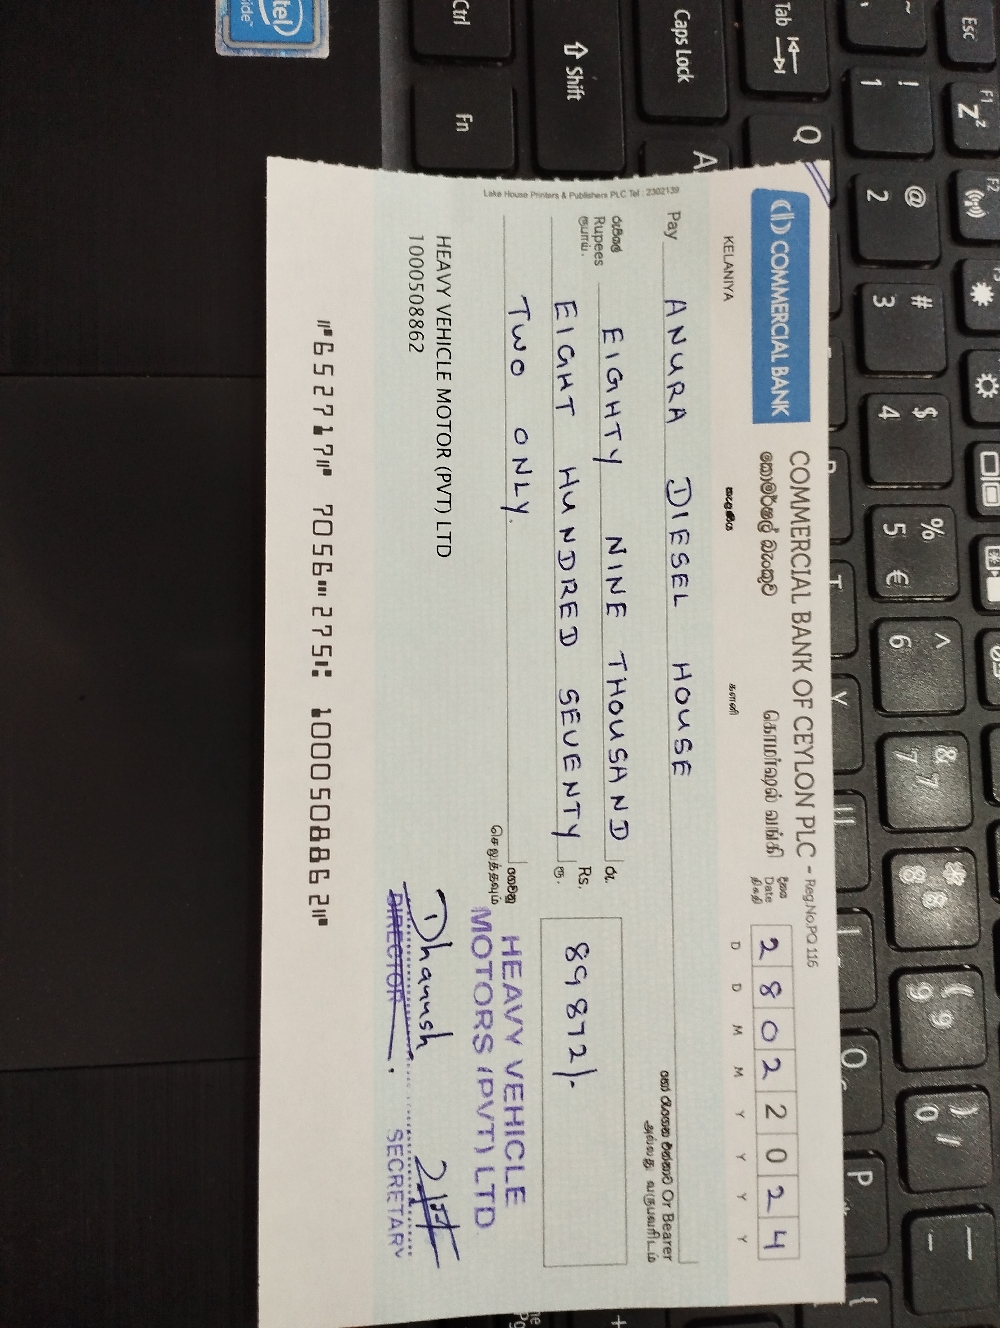 COMMERCIAL BANK
COMMERCIAL BANK OF CEYLON PLC - Reg.No.PQ 116
කොමර්ෂල් බැංකුව
கொமர்ஷல் வங்கி
KELANIYA
කැළණිය
களனி
දිනය
Date
திகதி
2 8 0 2 2 0 2 4
D D M M Y Y Y Y
Pay ANURA DIESEL HOUSE
හෝ රැගෙන එන්නාට Or Bearer
அல்லது வருபவரிடம்
රුපියල්
Rupees
ரூபாய்.
EIGHTY NINE THOUSAND
EIGHT HUNDRED SEVENTY
TWO ONLY.
රු.
Rs.
ரூ.
89872/-
ගෙවනු
செலுத்தவும்
Lake House Printers & Publishers PLC Tel : 2302139
HEAVY VEHICLE MOTOR (PVT) LTD
1000508862
HEAVY VEHICLE
MOTORS (PVT) LTD
Dhanush
DIRECTOR
SECRETARY
⑈652717⑈ 7056⑉275⑆ 1000508862⑈
Esc
F1
F2
Tab
Caps Lock
Shift
Ctrl
Fn
Q
A
T
Y
U
O
P
~
! 1
@ 2
# 3
$ 4
% 5 €
^ 6
& 7 7
* 8 8
( 9 9
) 0 /